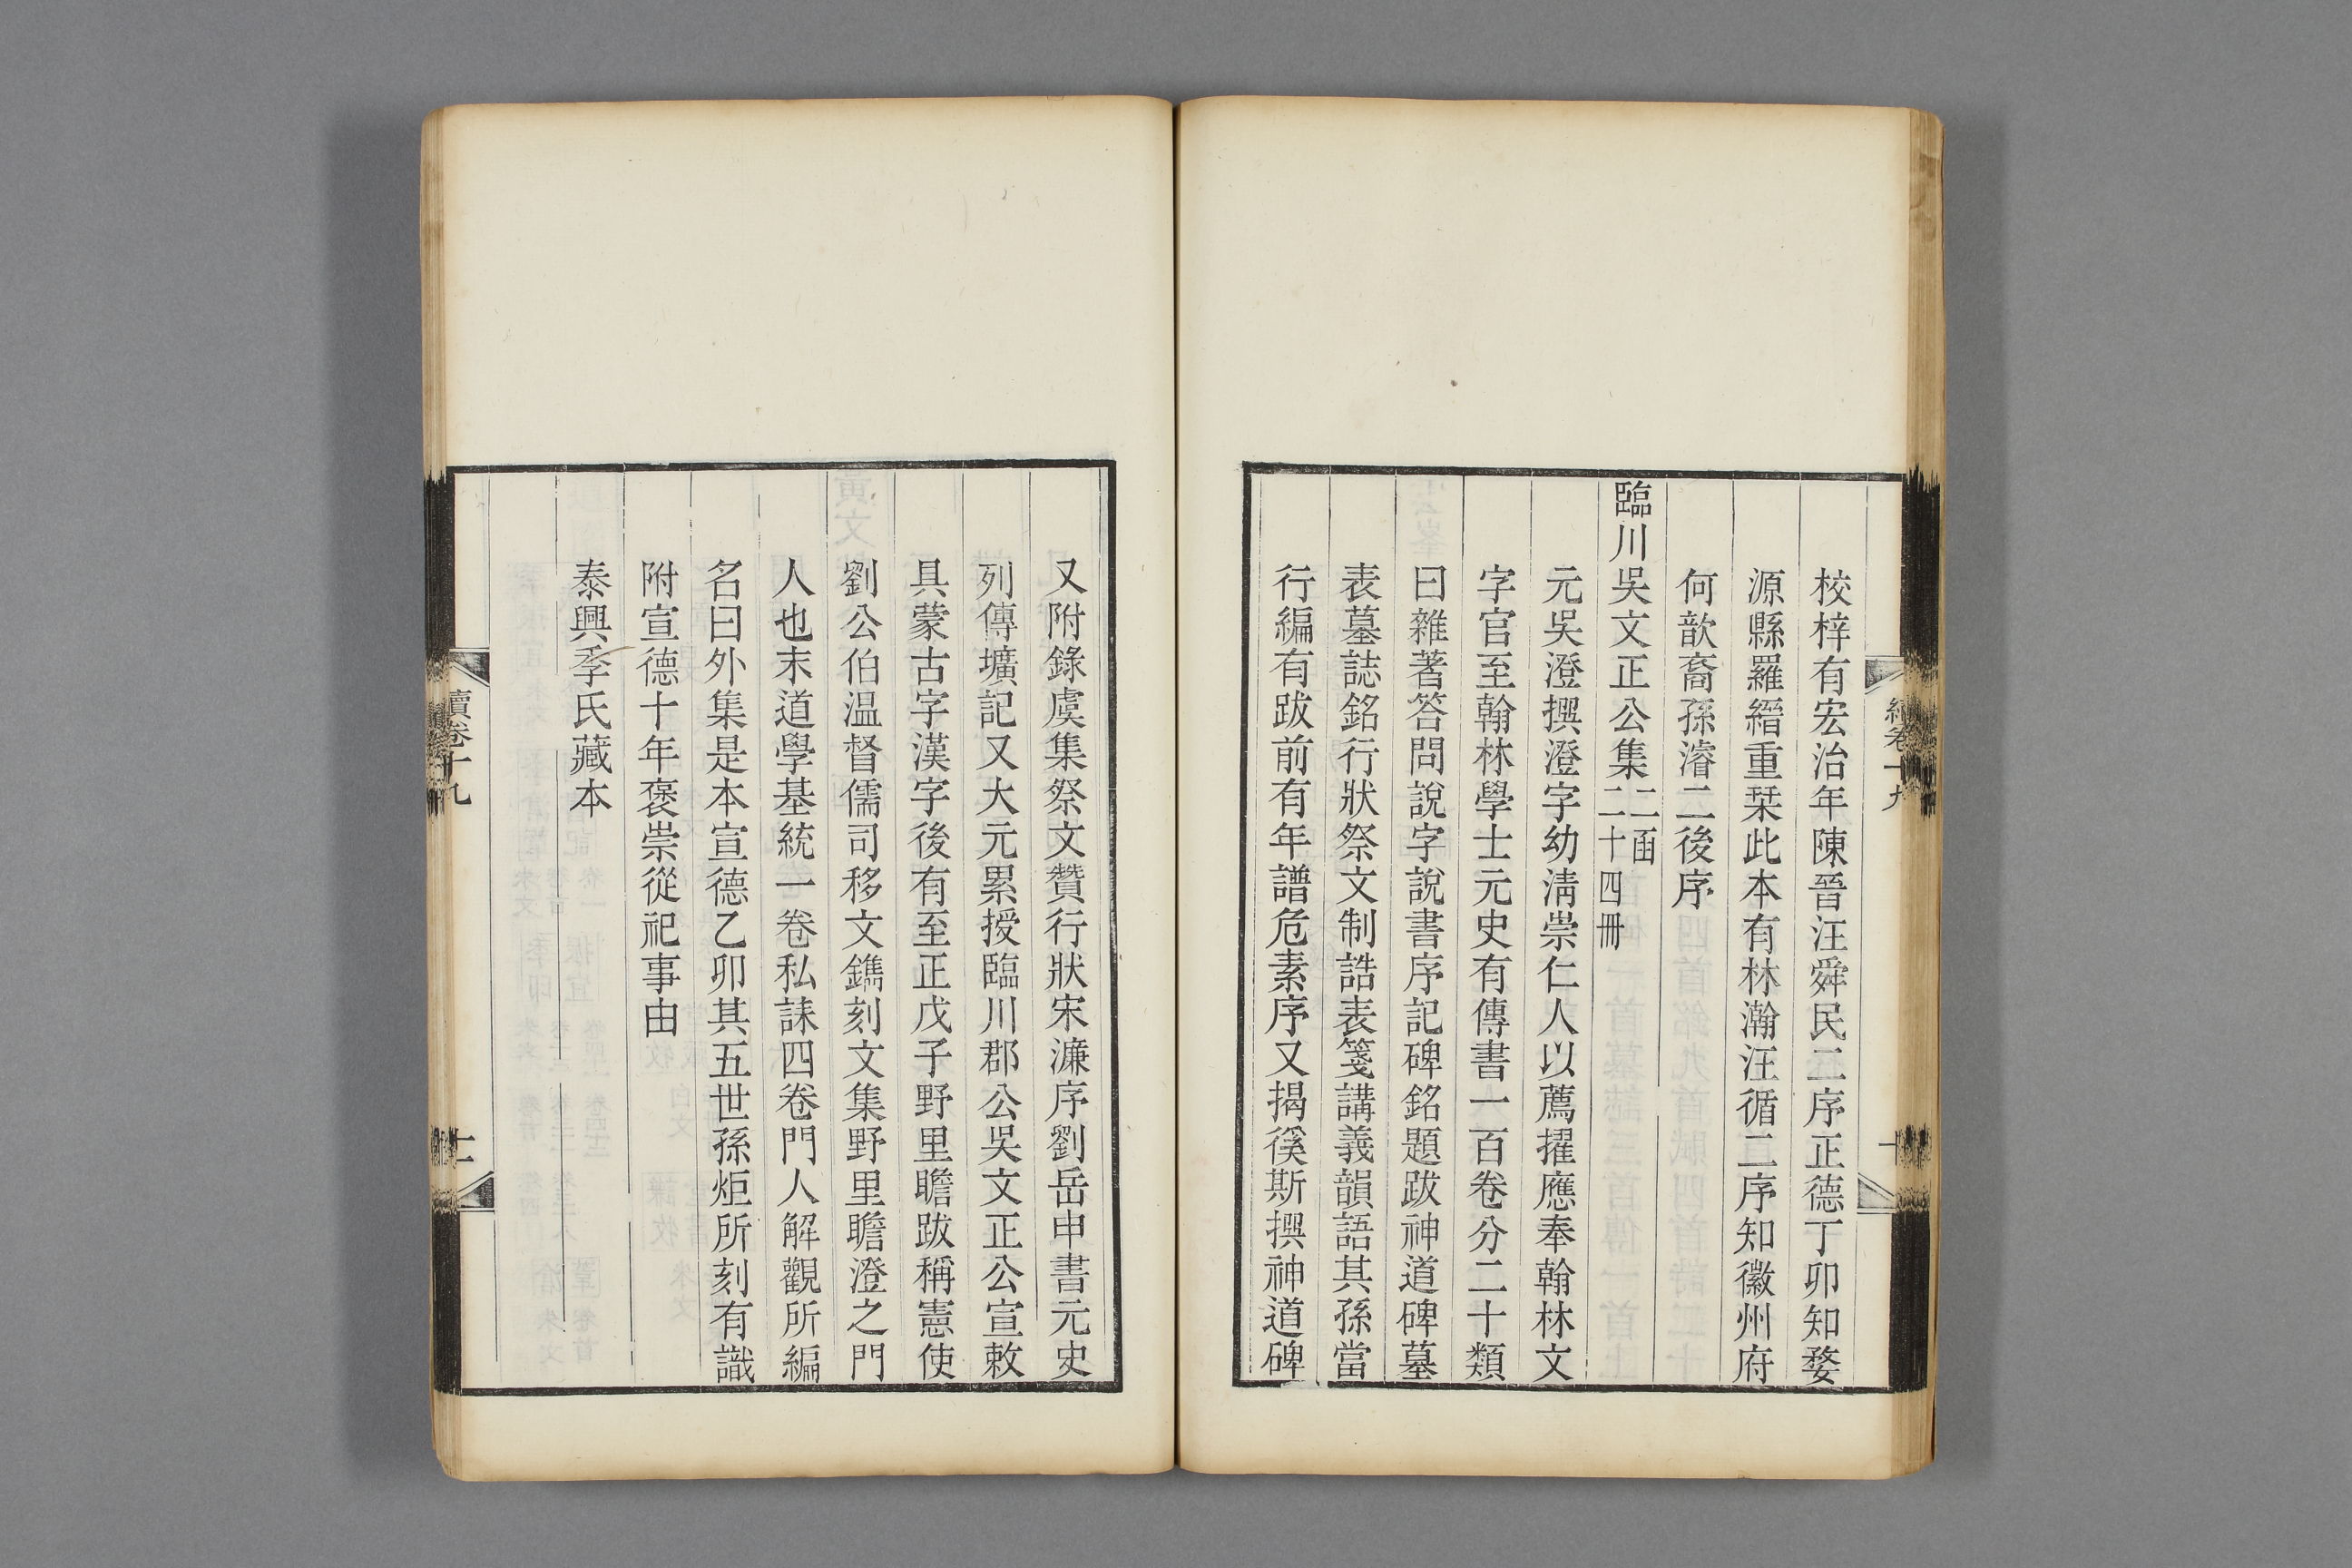 校梓有宏治年陳晉汪舜民二序正德丁卯知婺
源縣羅縉重栞此本有林瀚汪循二序知徽州府
何歆裔孫濬二後序
臨川吳文正公集二函二十四冊
元吳澄撰澄字幼淸崇仁人以薦擢應奉翰林文
字官至翰林學士元史有傳書一百卷分二十類
曰雜著答問說字說書序記碑銘題跋神道碑墓
表墓誌銘行狀祭文制誥表箋講義韻語其孫當
行編有跋前有年譜危素序又揭徯斯撰神道碑
續卷十九
十
又附錄虞集祭文贊行狀宋濂序劉岳申書元史
列傳壙記又大元累授臨川郡公吳文正公宣敕
具蒙古字漢字後有至正戊子野里瞻跋稱憲使
劉公伯温督儒司移文鐫刻文集野里瞻澄之門
人也末道學基統一卷私諌四卷門人解觀所編
名曰外集是本宣德乙卯其五世孫炬所刻有識
附宣德十年褒崇從祀事由
泰興季氏藏本
續卷十九
十一